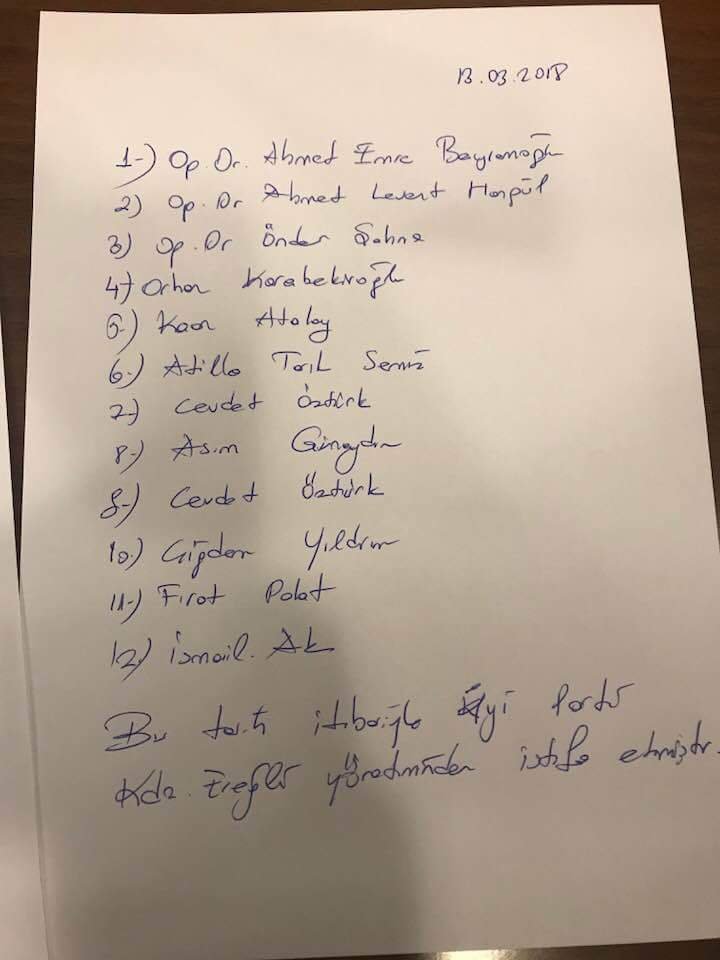 13.03.2018
1-) Op. Dr. Ahmet Emre Bayramoğlu
2) Op. Dr Ahmet Levent Harpül
3) Op. Dr Önder Şahne
4-) Orhan Karabekiroğlu
5-) Kaan Atalay
6-) Atilla Tarık Semiz
7-) Cevdet Öztürk
8-) Asım Günaydın
8-) Cevdet Öztürk
10-) Çiğdem Yıldırım
11-) Fırat Polat
12) İsmail. Ak
Bu tarih itibariyle iyi Parti
Kdz. Ereğli yönetiminden istifa etmiştir.